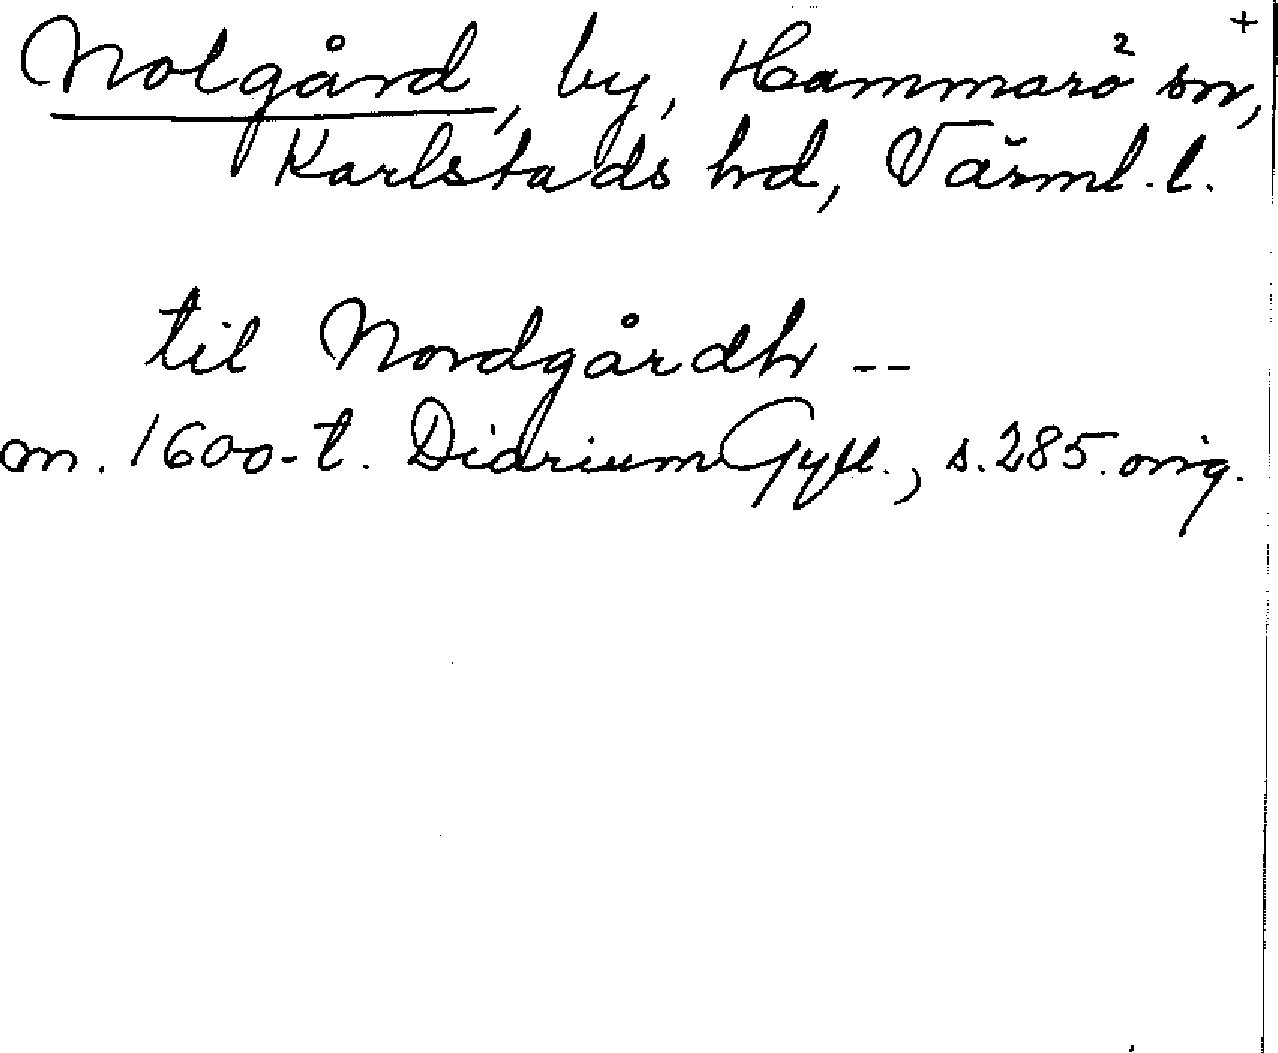 +
Nolgård, by, Hammarö² sn,
Karlstads hd, Värml. l.
til Nordgårdh --
m. 1600-t. Diarium Gyll., s. 285. orig.